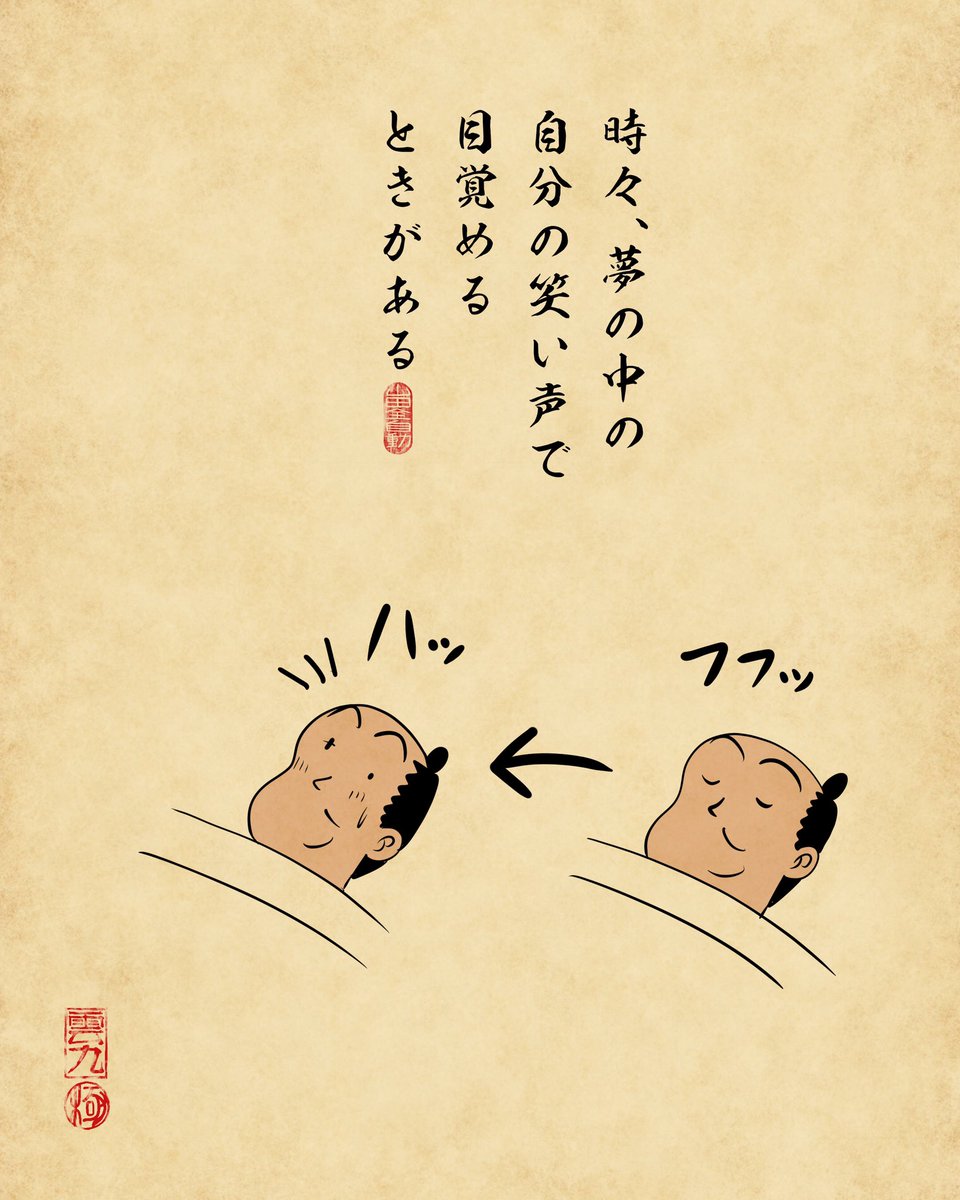 時々、夢の中の
自分の笑い声で
目覚める
ときがある
フフッ
ハッ